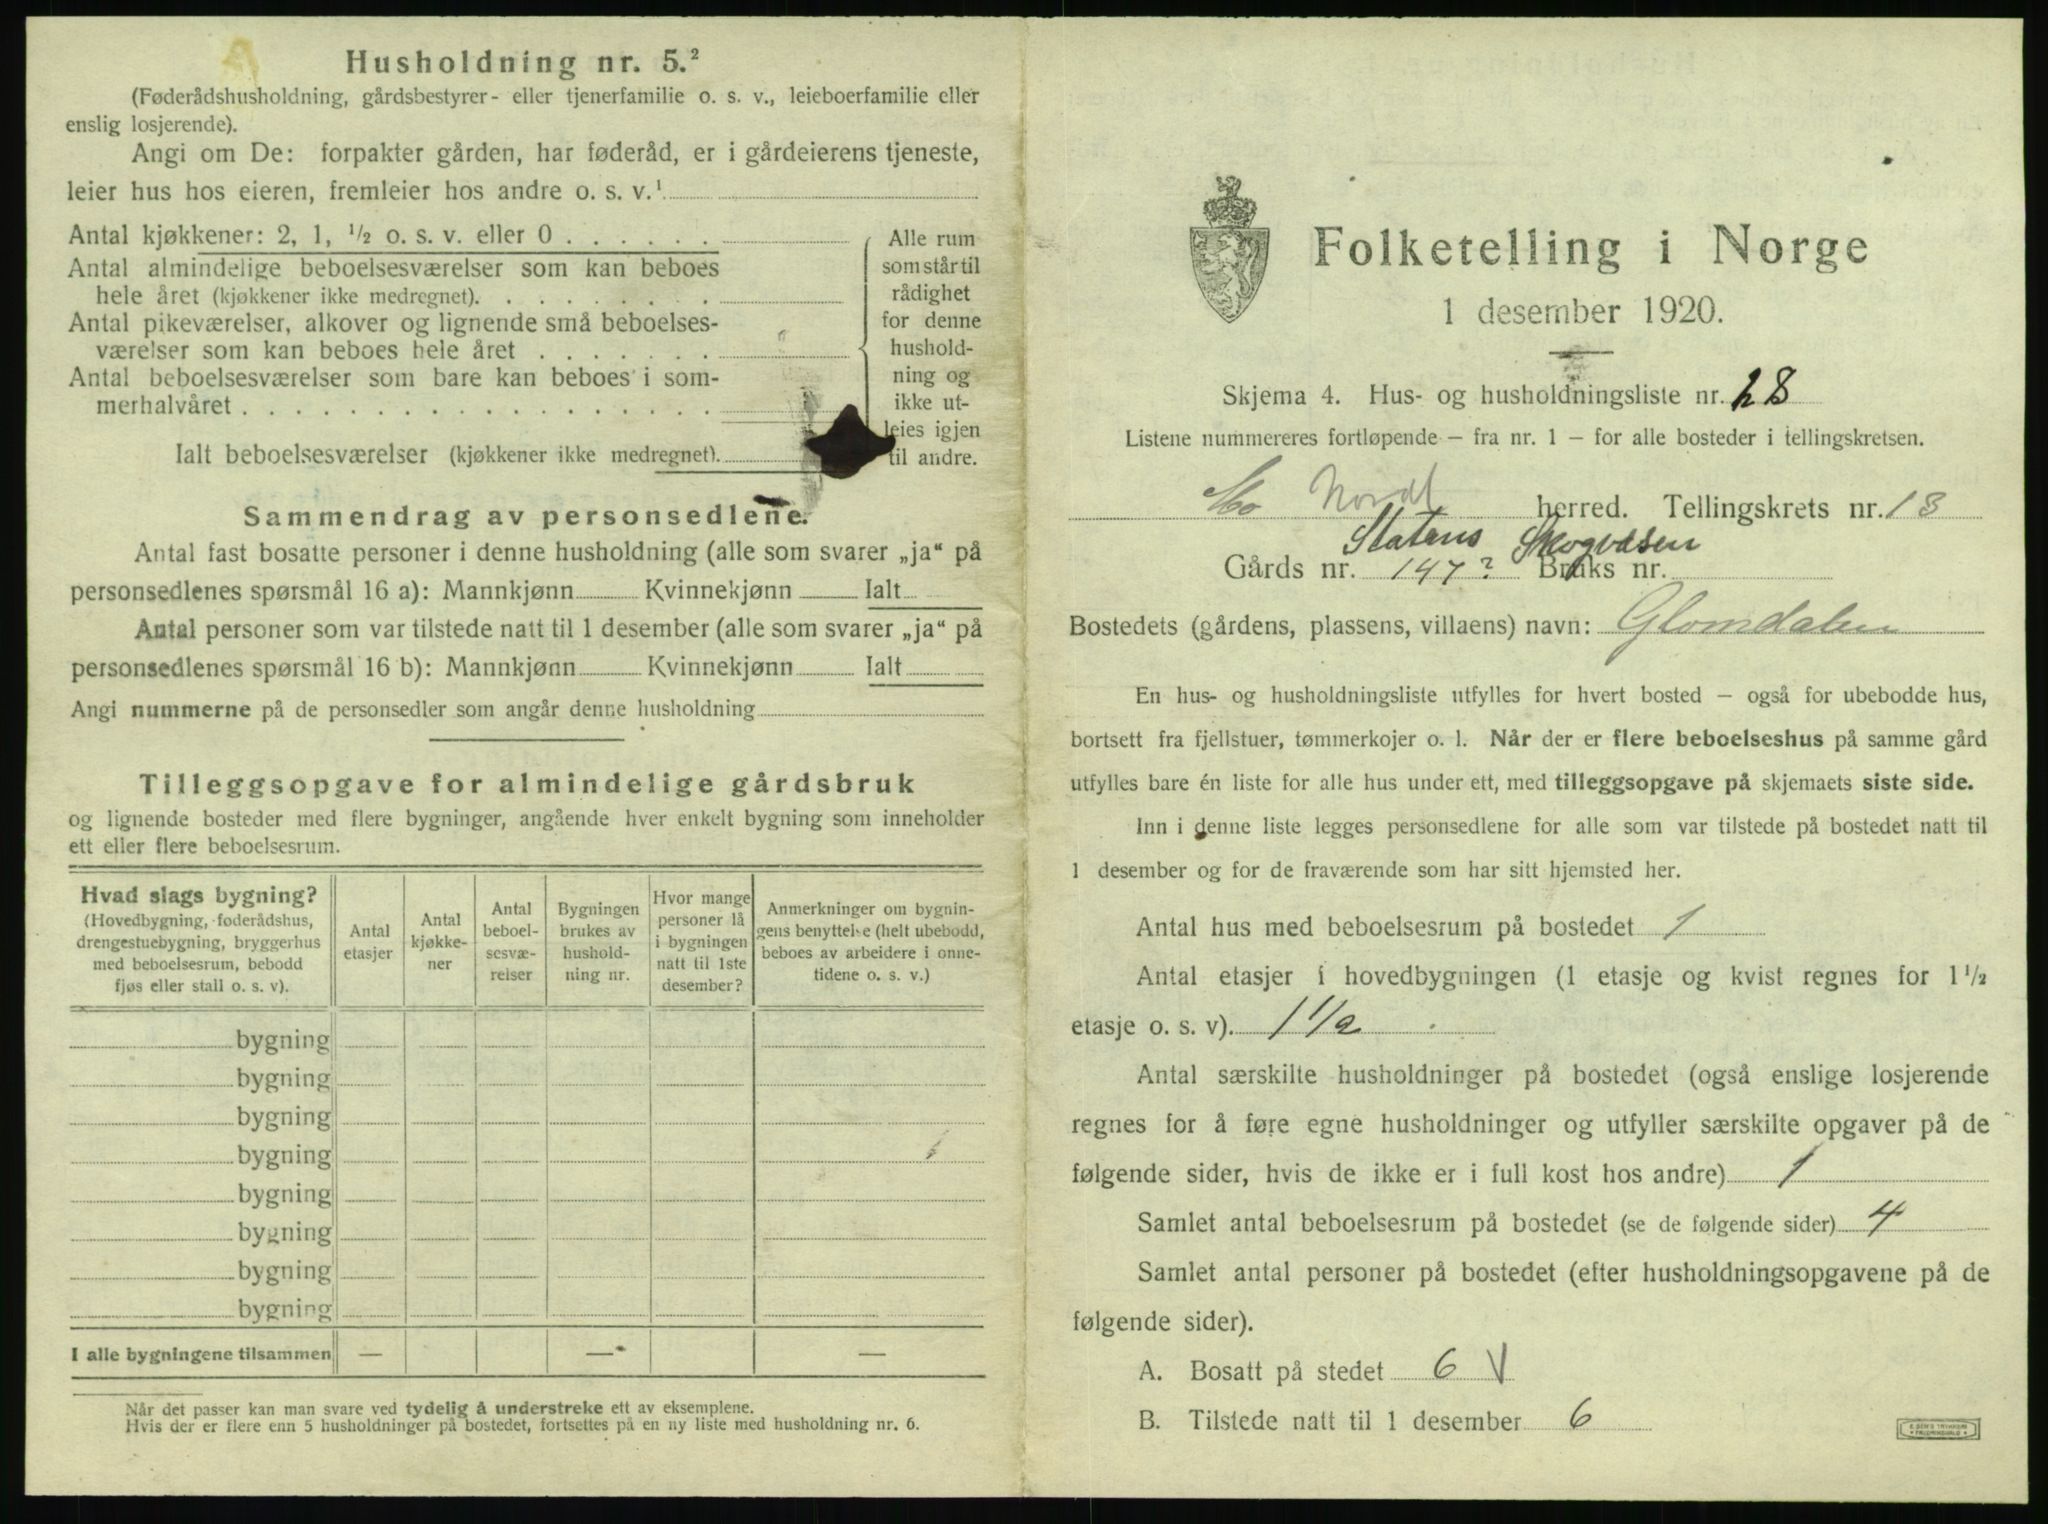 Husholdning nr. 5.²
(Føderådshusholdning, gårdsbestyrer- eller tjenerfamilie o. s. v., leieboerfamilie eller
enslig losjerende).
Angi om De: forpakter gården, har føderåd, er i gårdeierens tjeneste,
leier hus hos eieren, fremleier hos andre o. s. v.¹
Antal kjøkkener: 2, 1, ½ o. s. v. eller 0 . . . . . .
Antal almindelige beboelsesværelser som kan beboes
hele året (kjøkkener ikke medregnet). . . . . . . . .
Antal pikeværelser, alkover og lignende små beboelses-
værelser som kan beboes hele året . . . . . . .
Antal beboelsesværelser som bare kan beboes i som-
merhalvåret . . . . . . . . . . . . . . . . . .
Ialt beboelsesværelser (kjøkkener ikke medregnet).
Alle rum
som står til
rådighet
for denne
hushold-
ning og
ikke ut-
leies igjen
til andre.
Sammendrag av personsedlene.
Antal fast bosatte personer i denne husholdning (alle som svarer „ja“ på
personsedlenes spørsmål 16 a): Mannkjønn Kvinnekjønn Ialt
Antal personer som var tilstede natt til 1 desember (alle som svarer „ja“ på
personsedlenes spørsmål 16 b): Mannkjønn Kvinnekjønn Ialt
Angi nummerne på de personsedler som angår denne husholdning
Tilleggsopgave for almindelige gårdsbruk
og lignende bosteder med flere bygninger, angående hver enkelt bygning som inneholder
ett eller flere beboelsesrum.
Hvad slags bygning?
(Hovedbygning, føderådshus,
drengestuebygning, bryggerhus
med beboelsesrum, bebodd
fjøs eller stall o. s. v).
Antal
etasjer
Antal
kjøkke-
ner
Antal
beboel-
sesvæ-
relser
Bygningen
brukes av
hushold-
ning nr.
Hvor mange
personer lå
i bygningen
natt til 1ste
desember?
Anmerkninger om bygnin-
gens benyttelse (helt ubebodd,
beboes av arbeidere i onne-
tidene o. s. v.)
bygning
bygning
bygning
bygning
bygning
bygning
bygning
bygning
I alle bygningene tilsammen — — —
Når det passer kan man svare ved tydelig å understreke ett av eksemplene.
Hvis der er flere enn 5 husholdninger på bostedet, fortsettes på en ny liste med husholdning nr. 6.
Folketelling i Norge
1 desember 1920.
Skjema 4. Hus- og husholdningsliste nr. 28
Listene nummereres fortløpende – fra nr. 1 – for alle bosteder i tellingskretsen.
Mo Nord herred. Tellingskrets nr. 13
Statens Skogvesen
Gårds nr. 147? Bruks nr.
Bostedets (gårdens, plassens, villaens) navn: Glomdalen
En hus- og husholdningsliste utfylles for hvert bosted – også for ubebodde hus,
bortsett fra fjellstuer, tømmerkojer o. l. Når der er flere beboelseshus på samme gård
utfylles bare én liste for alle hus under ett, med tilleggsopgave på skjemaets siste side.
Inn i denne liste legges personsedlene for alle som var tilstede på bostedet natt til
1 desember og for de fraværende som har sitt hjemsted her.
Antal hus med beboelsesrum på bostedet 1
Antal etasjer i hovedbygningen (1 etasje og kvist regnes for 1½
etasje o. s. v). 1 1/2
Antal særskilte husholdninger på bostedet (også enslige losjerende
regnes for å føre egne husholdninger og utfyller særskilte opgaver på de
følgende sider, hvis de ikke er i full kost hos andre) 1
Samlet antal beboelsesrum på bostedet (se de følgende sider) 4
Samlet antal personer på bostedet (efter husholdningsopgavene på de
følgende sider).
A. Bosatt på stedet 6 V
B. Tilstede natt til 1 desember 6